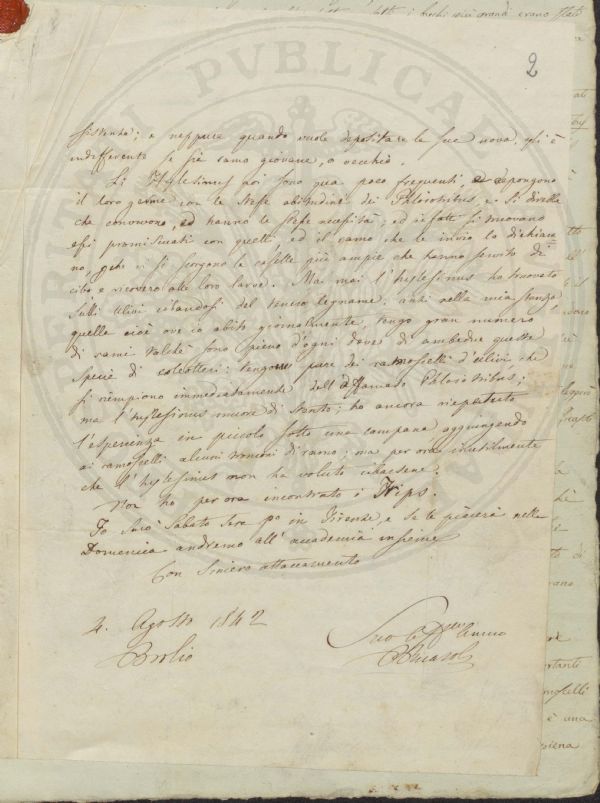 2
sistenza; e neppure quando vuole depositare le sue uova, gli è
indifferente se sia ramo giovane, o vecchio.
Li Hylesinus poi sono qua poco frequenti, e depongono
il loro germe con le stesse abitudini dei Phloiotribus, e si direbbe
che convivono, ed hanno le stesse necessità; ed infatti si trovano
essi promiscuati con quelli, ed il ramo che le invio lo dichiara
no, che vi si scorgono le caselle più ampie che hanno servito di
cibo e ricovero alle loro larve. Ma mai l'hylesinus ho trovato
sulli Ulivi cibandosi del tenero legname; anzi nella mia stanza
quella cioè ove io abito giornalmente, tengo gran numero
di rami talchè sono pieno d'ogni dove di ambedue queste
specie di coleotteri: tengovi pure dei ramoscelli d'ulivi che
si riempiono immediatamente dell'affamato Phloiotribus;
ma l'hylesinus muore di stento; ho ancora ripetuto
l'esperienza in piccolo sotto una campana aggiungendo
ai ramoscelli alcuni tronconi di ramo; ma per ora inutilmente
che l'hylesinus non ha voluto cibarsene.
Non ho per ora incontrato i Trips.
Io Sarò Sabato sera po in Firenze, e se le piacerà nella
Domenica andremo all'accademia insieme
Con sincero attaccamento
4. Agosto 1842
Brolio
Suo Aff Amico
BRicasoli